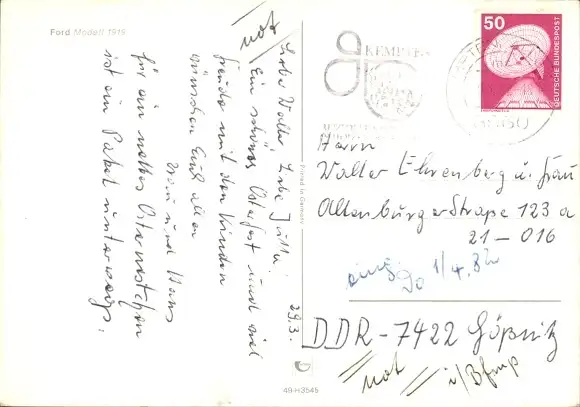 Ford Modell 1919
not
29.3.
Liebe Walter, Liebe Jutti!
Ein schönes Osterfest und viel
Freude mit den Kindern
wünschen Euch allen
und Hans
für ein nettes Osternestchen
ist ein Paket unterwegs.
Printed in Germany
49-H3545
KEMPTEN
50
DEUTSCHE BUNDESPOST
Herrn
Walter Ehrenberg u. Frau
Altenburger Straße 123 a
21-016
eing. 1/4.
DDR-7422 Gößnitz
not